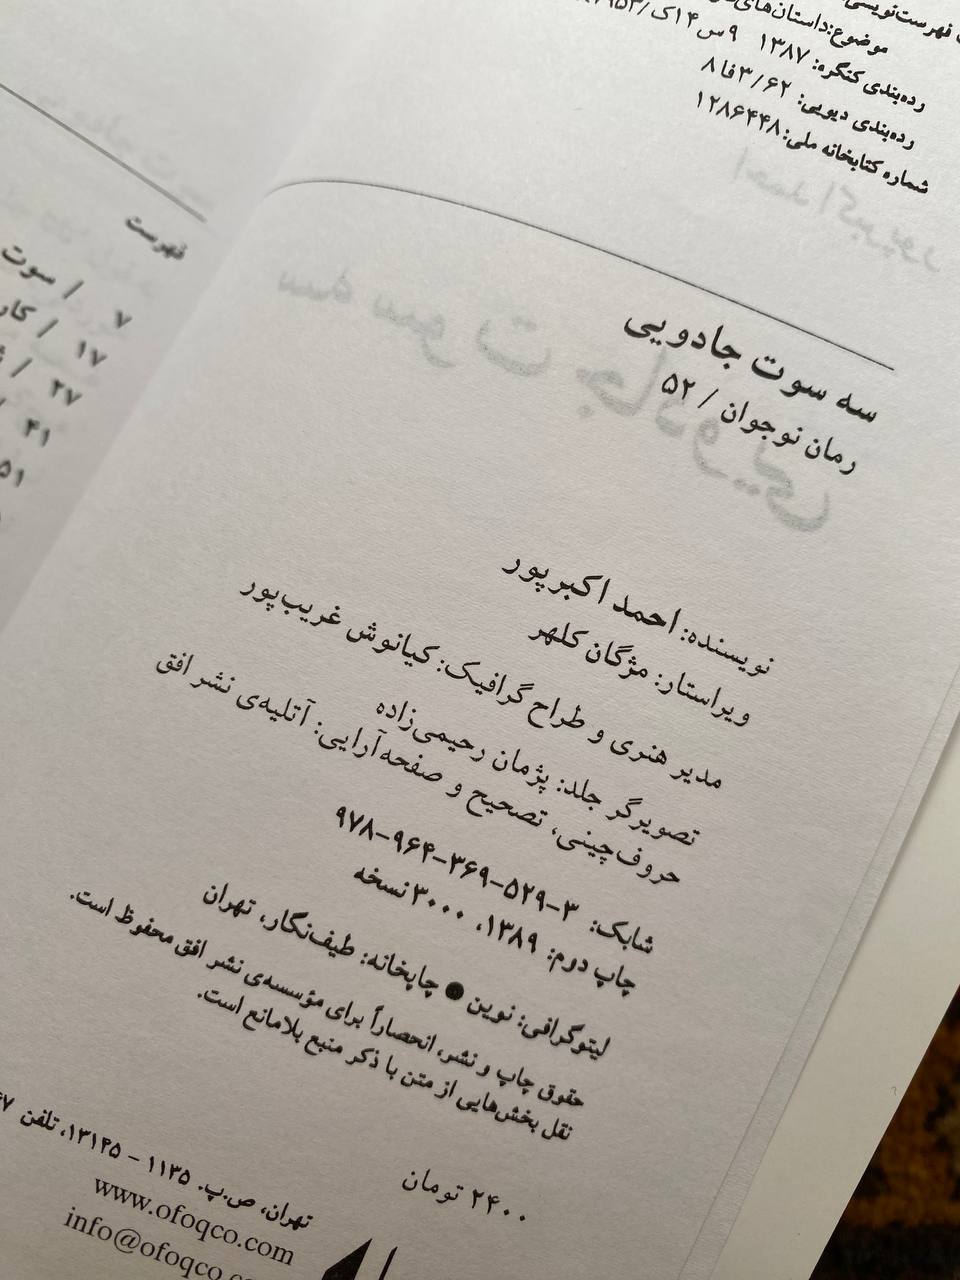 فهرست‌نویسی
موضوع: داستان‌های
رده‌بندی کنگره: ۱۳۸۷ ۹س۱۴ک/
رده‌بندی دیویی: ۳/۶۲فا۸
شماره کتابخانه ملی: ۱۲۸۶۴۴۸
سه سوت جادویی
رمان نوجوان / ۵۲
نویسنده: احمد اکبرپور
ویراستار: مژگان کلهر
مدیر هنری و طراح گرافیک: کیانوش غریب‌پور
تصویرگر جلد: پژمان رحیمی‌زاده
حروف‌چینی، تصحیح و صفحه‌آرایی: آتلیه‌ی نشر افق
شابک: ۳-۵۲۹-۳۶۹-۹۶۴-۹۷۸
چاپ دوم: ۱۳۸۹، ۳۰۰۰ نسخه
لیتوگرافی: نوین ● چاپخانه: طیف‌نگار، تهران
حقوق چاپ و نشر، انحصاراً برای مؤسسه‌ی نشر افق محفوظ است.
نقل بخش‌هایی از متن با ذکر منبع بلامانع است.
۲۴۰۰ تومان
تهران، ص.پ. ۱۱۳۵ – ۱۳۱۴۵، تلفن
www.ofoqco.com
info@ofoqco.co
فهرست
۷ / سوت
۱۷ / کار
۲۷ /
۴۱ /
۵۱